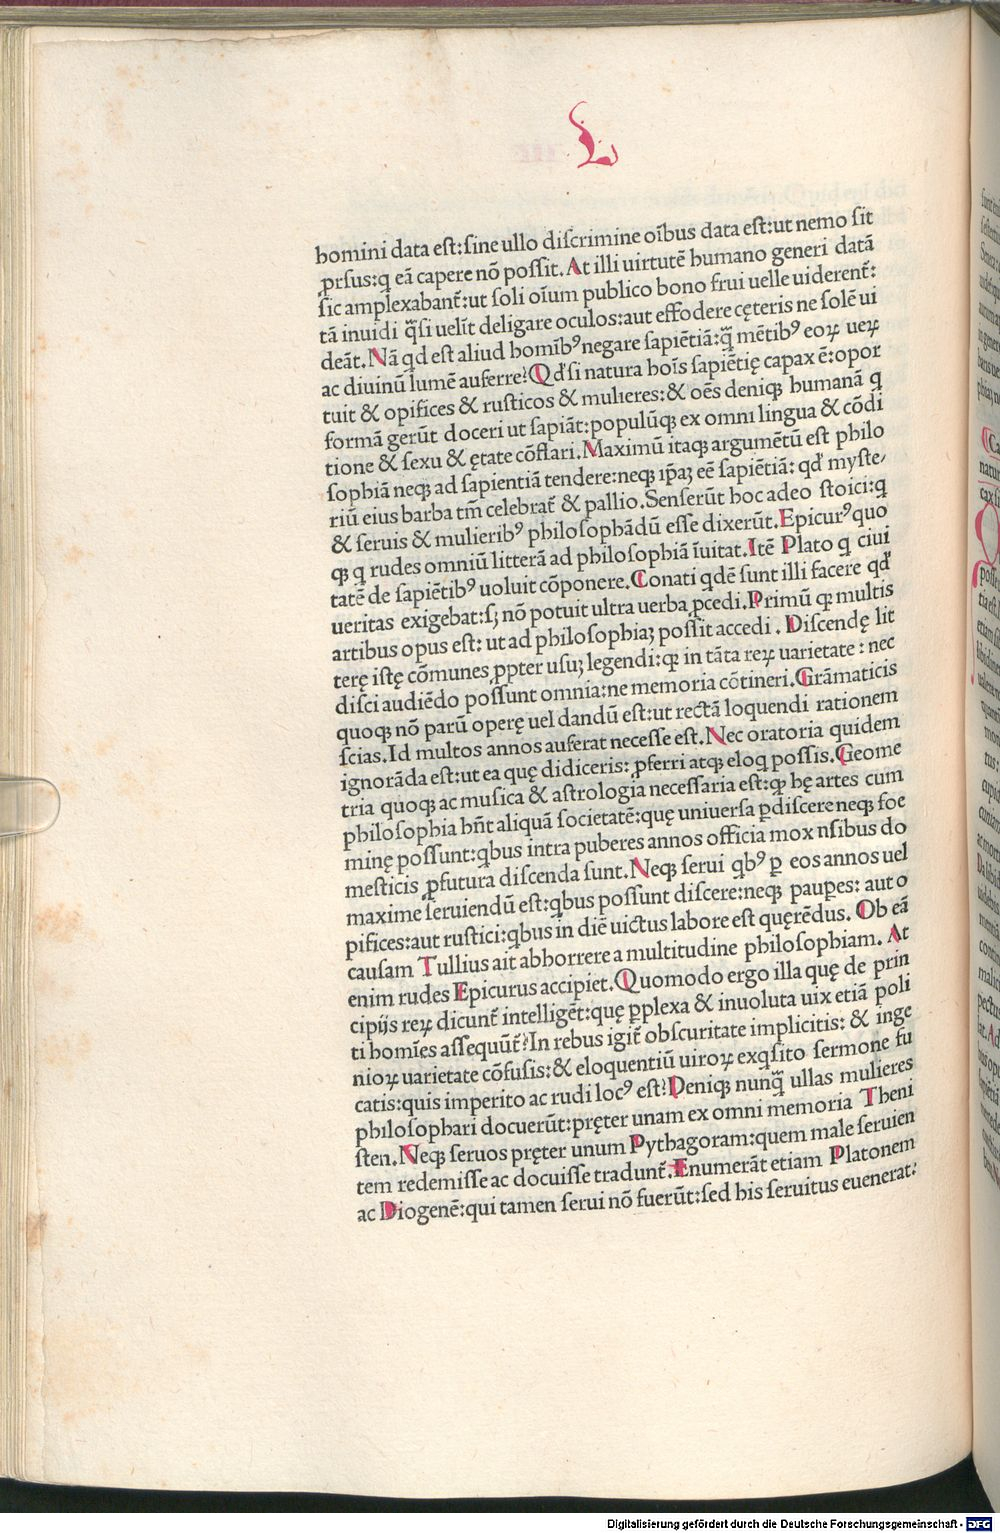 L
homini data est:sine ullo discrimine oībus data est:ut nemo sit
prsus:q eā capere nō possit.At illi uirtutē humano generi datā
sic amplexabant̄:ut soli oīum publico bono frui uelle uiderent̄:
tā inuidi q̄si uelīt deligare oculos:aut effodere cęteris ne solē ui
deāt.Nā qd est aliud homīb⁹ negare sapiētiā:q̄ mētib⁹ eoꝝ ueꝝ
ac diuinū lumē auferre?Qđ si natura hoīs sapiētię capax ē:opor
tuit & opifices & rusticos & mulieres:& oēs deniqꝫ humanā q
formā gerūt doceri ut sapiāt:populūqꝫ ex omni lingua & cōdi
tione & sexu & ętate cōflari.Maximū itaqꝫ argumētū est philo
sophiā neqꝫ ad sapientiā tendere:neqꝫ ip̄aꝫ eē sapiētiā: qđ myste/
riū eius barba tm̄ celebrat̄ & pallio.Senserūt hoc adeo stoici:q
& seruis & mulierib⁹ philosophādū esse dixerūt.Epicur⁹ quo
qꝫ q rudes omniū litterā ad philosophiā īuitat.Itē Plato q ciui
tatē de sapiētib⁹ uoluit cōponere.Conati qdē sunt illi facere qđ
ueritas exigebat:sꝫ nō potuit ultra uerba ꝓcedi.Primū qꝛ multis
artibus opus est: ut ad philosophiaꝫ possit accedi. Discendę lit
terę istę cōmunes ꝓpter usuꝫ legendi:qꝛ in tāta reꝝ uarietate: nec
disci audiēdo possunt omnia:ne memoria cōtineri.Grāmaticis
quoqꝫ nō parū operę uel dandū est:ut rectā loquendi rationem
scias.Id multos annos auferat necesse est.Nec oratoria quidem
ignorāda est:ut ea quę didiceris: ꝓferri atqꝫ eloq possis.Geome
tria quoqꝫ ac musica & astrologia necessaria est:qꝛ hę artes cum
philosophia hn̄t aliquā societatē:quę uniuersa ꝑdiscere neqꝫ foe
minę possunt:qbus intra puberes annos officia mox nsibus do
mesticis ꝓfutura discenda sunt.Neqꝫ serui qb⁹ ꝑ eos annos uel
maxime seruiendū est:qbus possunt discere:neqꝫ pauꝑes: aut o
pifices:aut rustici:qbus in diē uictus labore est quęrēdus. Ob eā
causam Tullius ait abhorrere a multitudine philosophiam. At
enim rudes Epicurus accipiet.Quomodo ergo illa quę de prin
cipijs reꝝ dicunt̄ intelligēt:quę ꝑplexa & inuoluta uix etiā poli
ti homīes assequūt̄?In rebus igit̄ obscuritate implicitis: & inge
nioꝝ uarietate cōfusis:& eloquentiū uiroꝝ exqsito sermone fu
catis:quis imperito ac rudi loc⁹ est?Deniqꝫ nunq̄ ullas mulieres
philosophari docuerūt:pręter unam ex omni memoria Theni
sten.Neqꝫ seruos pręter unum Pythagoram:quem male seruien
tem redemisse ac docuisse tradunt̄.Enumerāt etiam Platonem
ac Diogenē:qui tamen serui nō fuerūt:sed his seruitus euenerat:
Digitalisierung gefördert durch die Deutsche Forschungsgemeinschaft - DFG